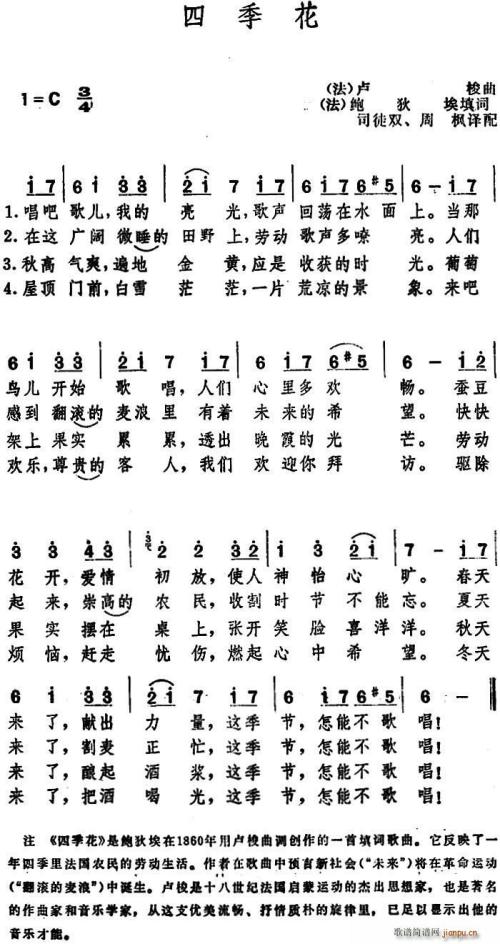 四季花
1=C 3/4
(法)卢 梭曲
(法)鲍 狄 埃填词
司徒双、周 枫译配
i 7 6 i 3 3 2 i 7 i 7 6 i 7 6 #5 6 - i 7
1. 唱吧 歌儿,我的 亮 光,歌声 回荡在水 面 上。当那
2. 在这 广阔 微睡的 田野 上,劳动 歌声多嘹 亮。人们
3. 秋高 气爽,遍地 金 黄,应是 收获的时 光。葡萄
4. 屋顶 门前,白雪 茫 茫,一片 荒凉的景 象。来吧
6 i 3 3 2 i 7 i 7 6 i 7 6 #5 6 - i 2
鸟儿 开始 歌 唱,人们 心里多欢 畅。蚕豆
感到 翻滚的 麦浪 里 有着 未来的希 望。快快
架上 果实 累 累,透出 晚霞的光 芒。劳动
欢乐,尊贵的 客 人,我们 欢迎你拜 访。驱除
3 3 4 3 3 2 2 3 2 i i 3 2 i 7 - i 7
花 开,爱情 初 放,使人 神怡心 旷。春天
起 来,崇高的 农 民,收割 时节不能 忘。夏天
果 实 摆在 桌 上,张开 笑脸喜洋 洋。秋天
烦 恼,赶走 忧 伤,燃起 心中希 望。冬天
6 i 3 3 2 i 7 i 7 6 i 7 6 #5 6 -
来 了,献出 力 量,这季 节,怎能不歌 唱!
来 了,割麦 正 忙,这季 节,怎能不歌 唱!
来 了,酿起 酒 浆,这季 节,怎能不歌 唱!
来 了,把酒 喝 光,这季 节,怎能不歌 唱!
注 《四季花》是鲍狄埃在1860年用卢梭曲调创作的一首填词歌曲。它反映了一
年四季里法国农民的劳动生活。作者在歌曲中预言新社会(“未来”)将在革命运动
(“翻滚的麦浪”)中诞生。卢梭是十八世纪法国启蒙运动的杰出思想家,也是著名
的作曲家和音乐学家,从这支优美流畅、抒情质朴的旋律里,已足以显示出他的
音乐才能。
歌谱简谱网
jianpu.cn